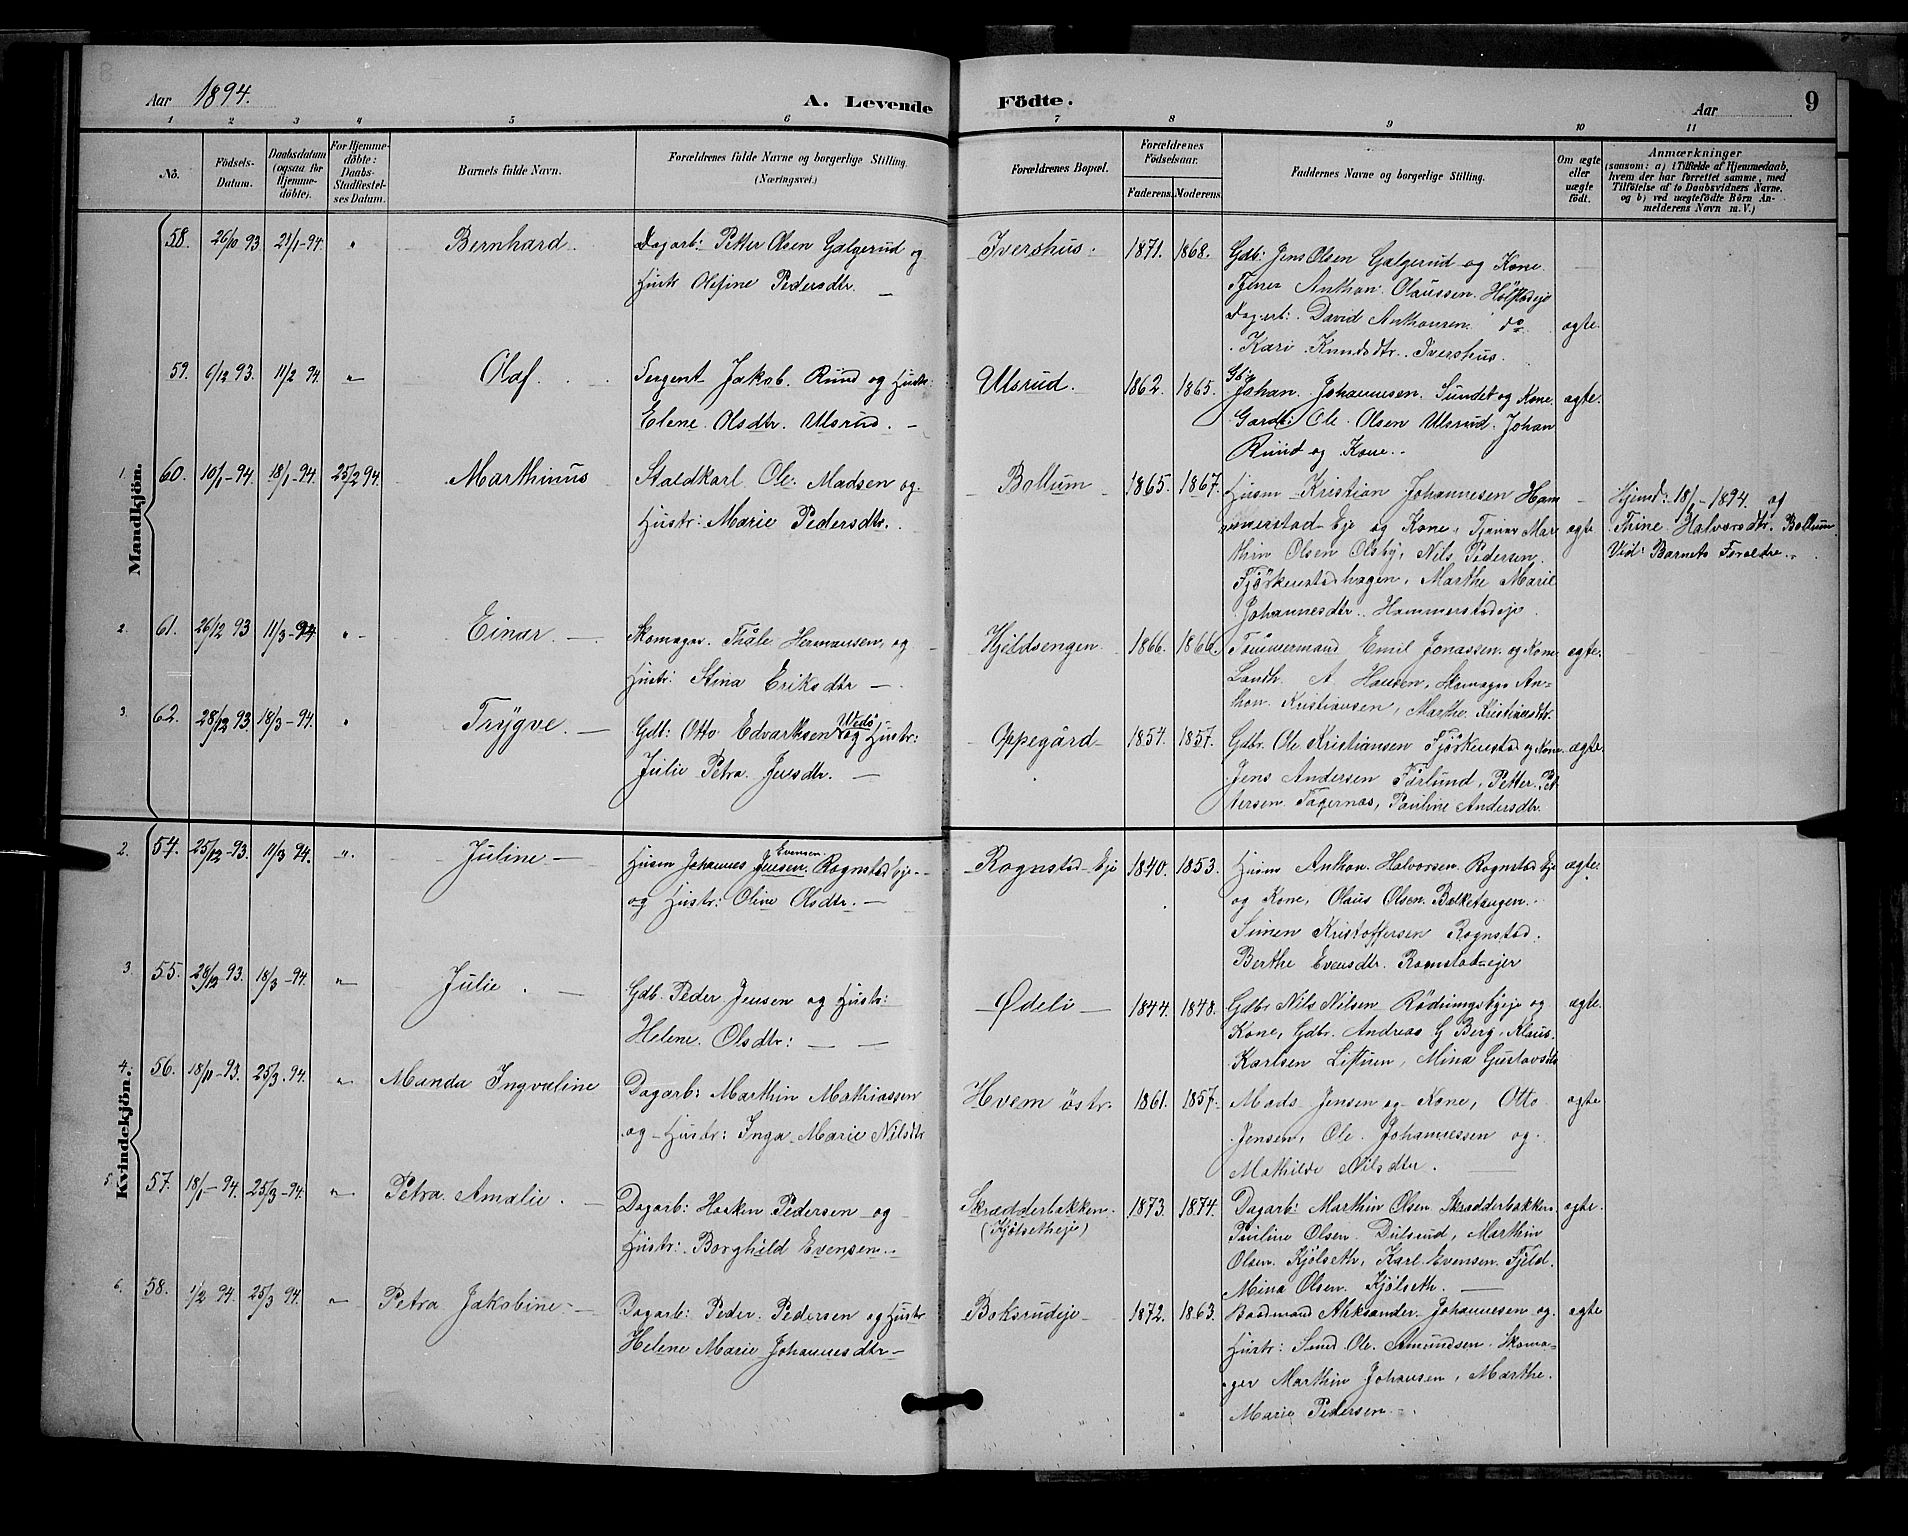 Aar 1894. A. Levende Födte. Aar 9
1 2 3 4 5 6 7 8 9 10 11
No. Födsels-Datum. Daabsdatum (ogsaa for Hjemmedöbte). For Hjemmedöbte: Daabs-Stadfæstelses Datum. Barnets fulde Navn. Forældrenes fulde Navne og borgerlige Stilling. (Næringsvei.) Forældrenes Bopæl. Forældrenes Födselsaar. Faderens. Moderens. Faddernes Navne og borgerlige Stilling. Om ægte eller uægte født. Anmærkninger (saasom: a) i Tilfælde af Hjemmedaab, hvem der har forrettet samme, med Tilföielse af to Daabsvidners Navne. og b) ved uægtefödte Börn Anmelderens Navn m. V.)
Mandkjön.
58. 26/10 93 21/1-94. " Bernhard. Dagarb: Petter Olsen Galgerud og Ivershus. 1871. 1868. Gdb: Jens Olsen Galgerud og Kone.
Hustr Olefine Pedersdtr. Tjener Anthon Olaussen
Dagarb: David Anthonsen do ægte.
Kari Knudsdtr. Ivershus.
59. 6/12 93. 11/2 94. " Olaf. Sergent Jakob Rund og Hustr: Ulsrud. 1862. 1865. Gbr. Johan Johannesen Sundet og Kone. ægte.
Elene Olsdtr. Ulsrud. Gardb: Ole Olsen Ulsrud. Johan
Rund og Kone.
1. 60. 10/1-94. 18/1-94. 25/2 94. Marthinus Staldkarl Ole Madsen og Bollum 1865. 1867. Husm Kristian Johannesen Ham Hjemd: 18/1-1894 af
Hustr: Marie Pedersdtr. merstad Eje og Kone, Tjener Mar ægte Thine Halvorsdtr. Bollum
thin Olsen Olsby, Nils Pedersen Vid: Barnets Forældre.
Fjörkenstadhagen, Marthe Marie
Johannesdtr. Hammerstadeje
2. 61. 26/12 93 11/3-94 " Einar Skomager Thåle Hermansen og Kjeldsengen 1866. 1866. Tömmermand Emil Jonassen og Kone ægte.
Hustr: Stina Eriksdtr Landh. A. Hansen, Skomager An-
thon Kristiansen, Marthe Kristiansdtr.
3. 62. 28/12 93. 18/3-94. " Trygve. Gdb: Otto Edvarksen Wedö og Hustr: Oppegård 1854. 1857. Gdbr. Ole Kristiansen Fjörkenstad og Kone ægte
Julie Petra Jensdtr. Jens Andersen Förlund, Petter Pet
tersen Fagernæs, Pauline Andersdtr.
Kvindekjön.
2. 54. 25/12-93. 11/3 94. " Juline Husm Johannes Jensen Evensen Rognstad Eje Rognstad Eje 1840. 1853. Husm Anthon Halvorsen Rognstad Eje ægte
og Hustr: Oline Olsdtr. og Kone, Olaus Olsen Balketangen.
Simen Kristoffersen Rognstad.
Berthe Evensdtr. Rognstad-ejer
3. 55. 28/12 93. 18/3-94. " Julie. Gdb. Peder Jensen og Hustr: Ødeli 1844. 1848. Gdbr Nils Nilsen Rödningsbyeje og ægte.
Helene Olsdtr: Kone, Gdbr. Andreas G Berg, Klaus
Karlsen Listuen, Mina Gustavsdtr
4. 56. 18/11-93. 25/3.94. " Manda Ingvaline Dagarb: Marthin Mathiassen Hvem östr. 1861. 1857. Mads Jensen og Kone, Otto ægte
og Hustr: Inga Marie Nilsdtr Jensen, Ole Johannessen og
Mathilde Nilsdtr.
5. 57. 18/1-94. 25/3-94. " Petra Amalie. Dagarb: Haaken Pedersen og Skrædderbakken. 1873. 1874. Dagarb: Marthin Olsen Skrædderbakken ægte.
(Kjölsetheje) Pauline Olsen Dulsrud, Marthin
Hustr: Borghild Evensen. Olsen Kjölseth, Karl Evensen Fjeld.
Mina Olsen Kjölseth.
6. 58. 1/2 94. 25/3 94. " Petra Jakobine Dagarb: Peder Pedersen og Hustr Boksrudeje 1872. 1863. Baadmand Aleksander Johannesen og ægte
Helene Marie Johannesdtr Hustr: Smed Ole Amundsen. Skoma-
ger Marthin Johansen, Marthe
Marie Pedersen